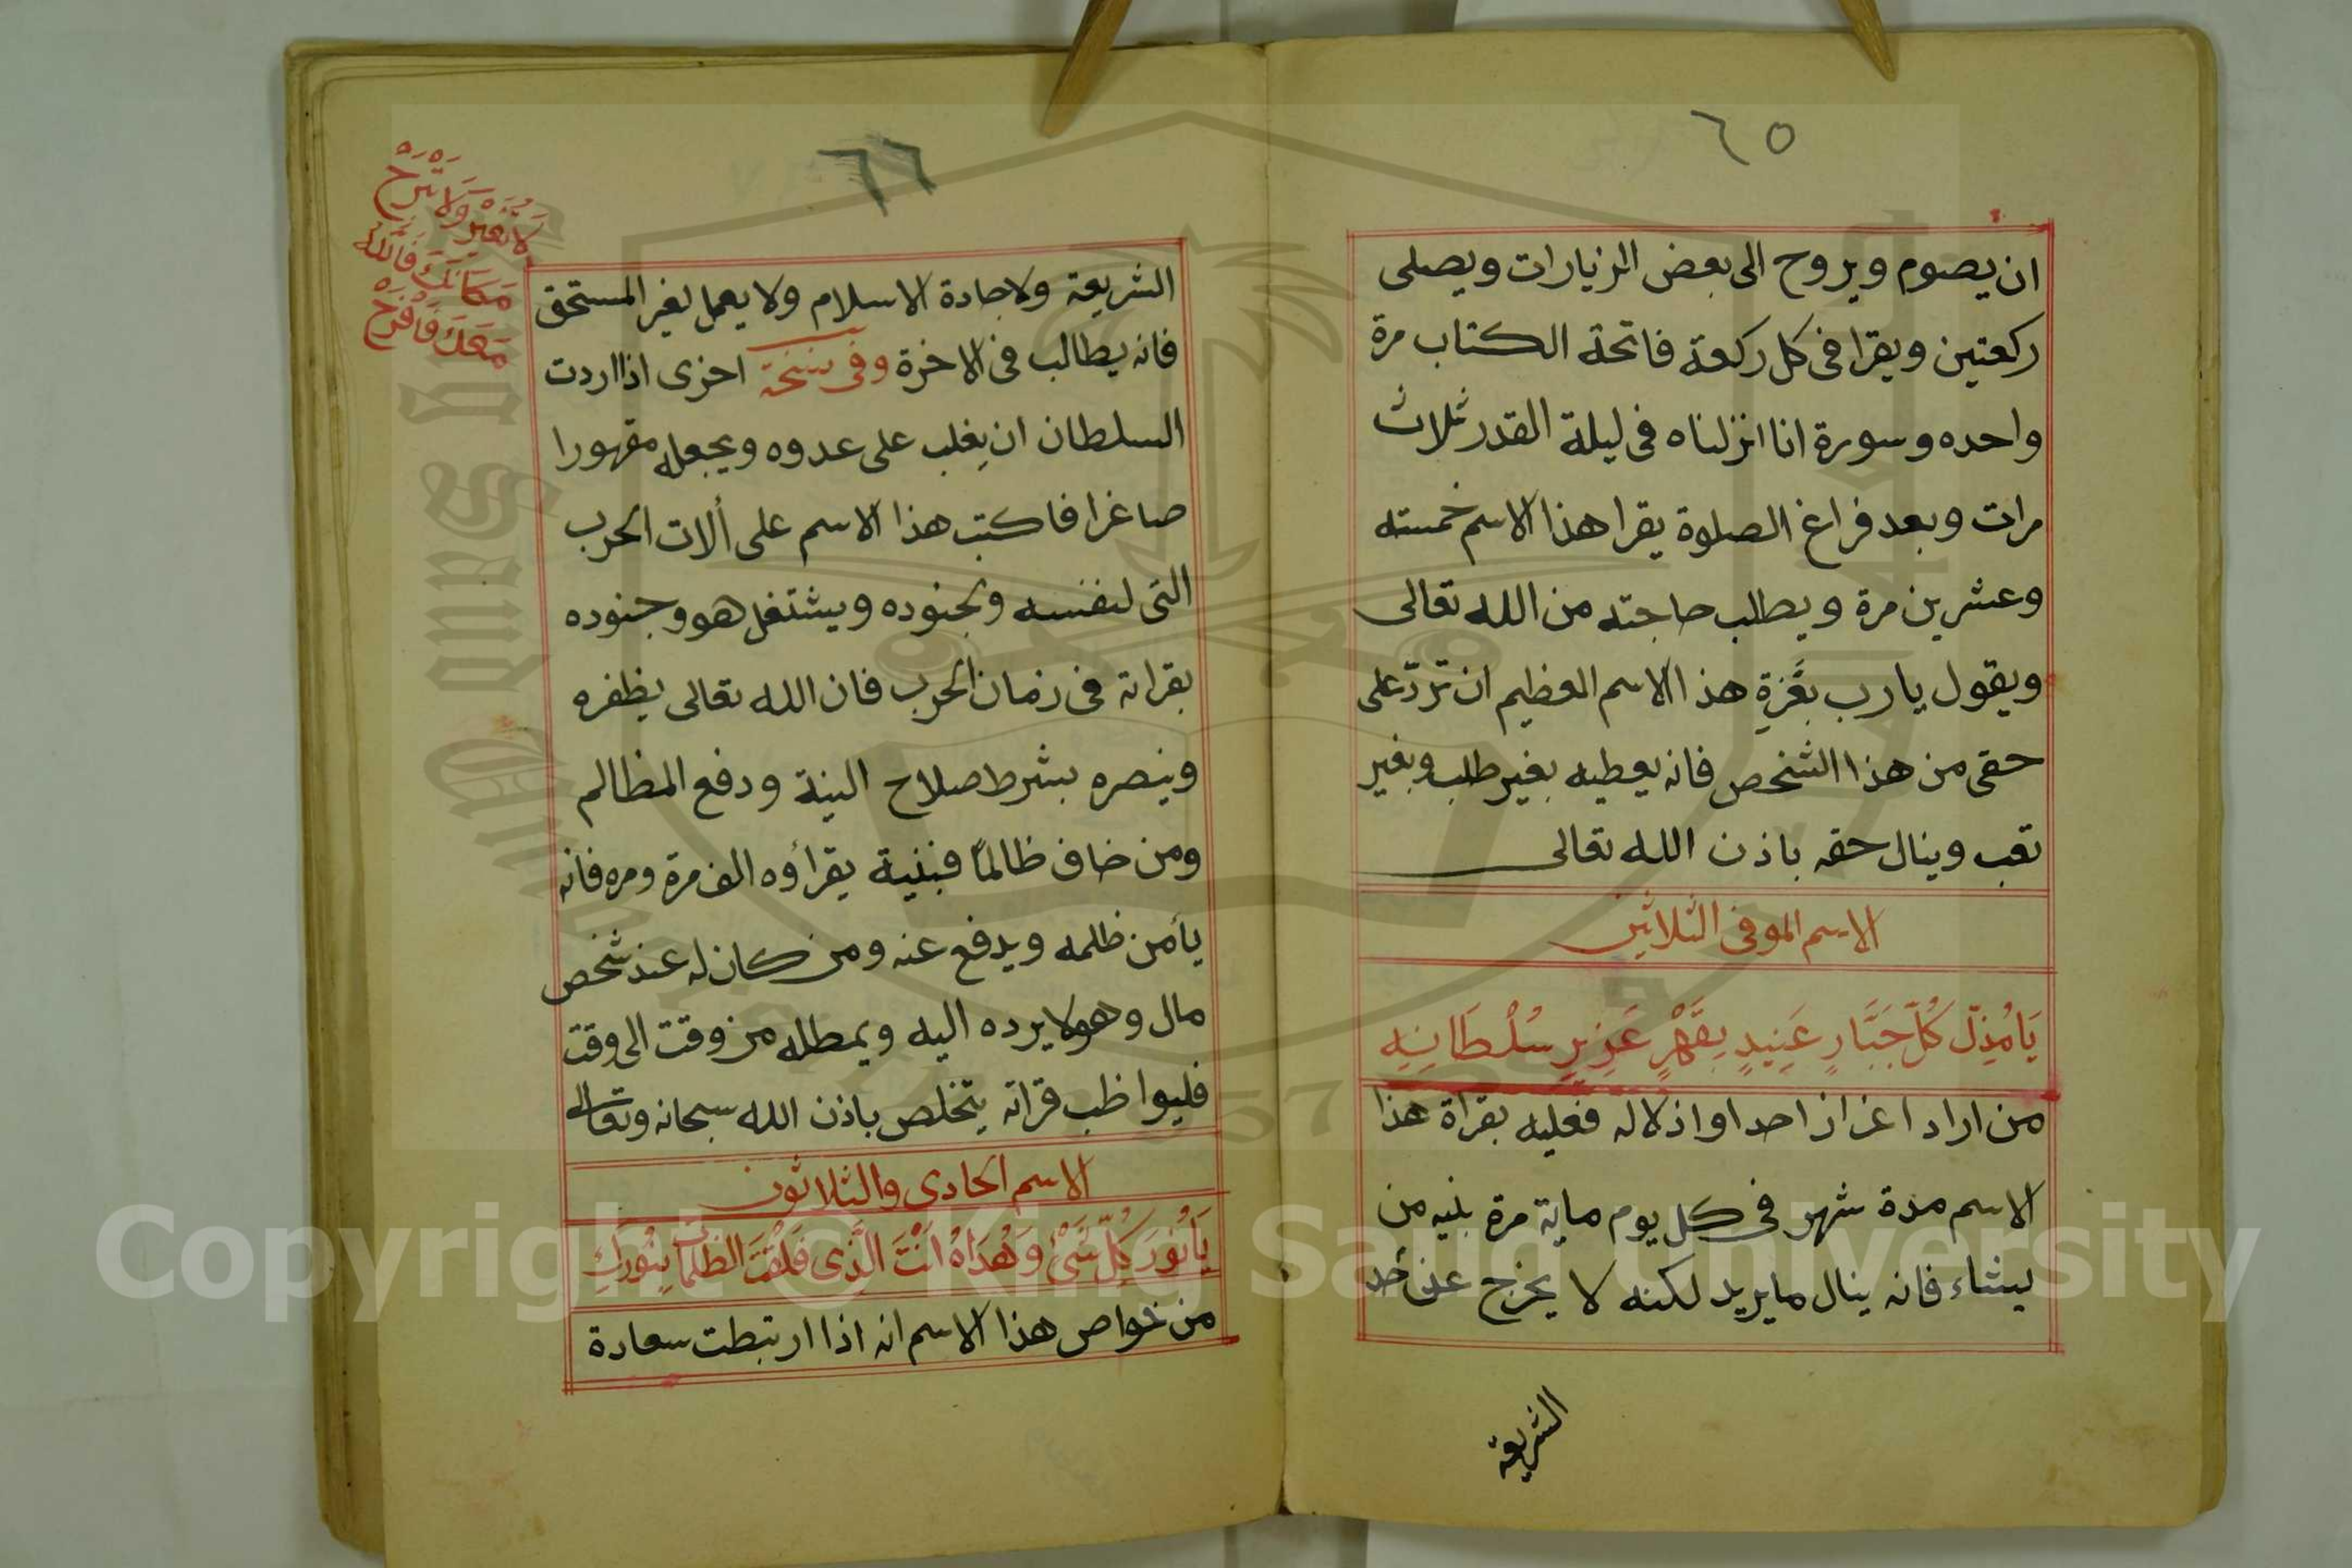 ٦٥
ان يصوم ويروح الى بعض المزيارات ويصلى
ركعتين ويقرا فى كل ركعة فاتحة الكتاب مرة
واحده وسورة انا انزلناه فى ليلة القدر ثلاث
مرات وبعد فراغ الصلوة يقرا هذا الاسم خمسته
وعشرين مرة ويطلب حاجته من الله تعالى
ويقول يا رب بعَزةِ هذا الاسم العظيم ان تردّ على
حقى من هذا الشخص فانه يعطيه بغير طلب وبغير
تعب وينال حقه باذن الله تعالى
الاسم الموفى الثلاثين
يَا مُذِلّ كُلّ جَبَّارٍ عَنِيدٍ بِقَهْرِ عَزِيزِ سُلْطَانِهِ
من اراد اعزاز احد او اذلاله فعليه بقراة هذا
الاسم مدة شهر فى كل يوم ماية مرة بنيه من
يشاء فانه ينال ما يريد لكنه لا يخرج عن حد
الشريعة
٦٦
الشريعة ولا جادة الاسلام ولا يعمل لغير المستحق
فانه يطالب فى الاخرة وفى نسخة اخرى اذا اردت
السلطان ان يغلب على عدوه ويجعله مقهورا
صاغرا فاكتب هذا الاسم على ألات الحرب
التى لنفسه ولجنوده ويشتغل هو وجنوده
بقراته فى زمان الحرب فان الله تعالى يظفره
وينصره بشرط صلاح النية ودفع المظالم
ومن خاف ظالمًا فبنية يقرأوه الف مرة ومره فانه
يأمن ظلمه ويدفع عنه ومن كان له عند شخص
مال وهو لا يرده اليه ويمطله من وقت الى وقت
فليواظب قراته يتخلص باذن الله سبحانه وتعالى
الاسم الحادى والثلاثون
يَا نُورَ كُلّ شَىْءٍ وَهُدَاهُ اَنْتَ الَّذِى فَلَقْتَ الظلمات بِنُورِكِ
من خواص هذا الاسم انه اذا ارتبطت سعادة
لَا تُغَيِّرْ وَلَا تَبْرَحْ
مَكَانَكَ فَاللّهُ
مَعَكَ فَافْرَحْ